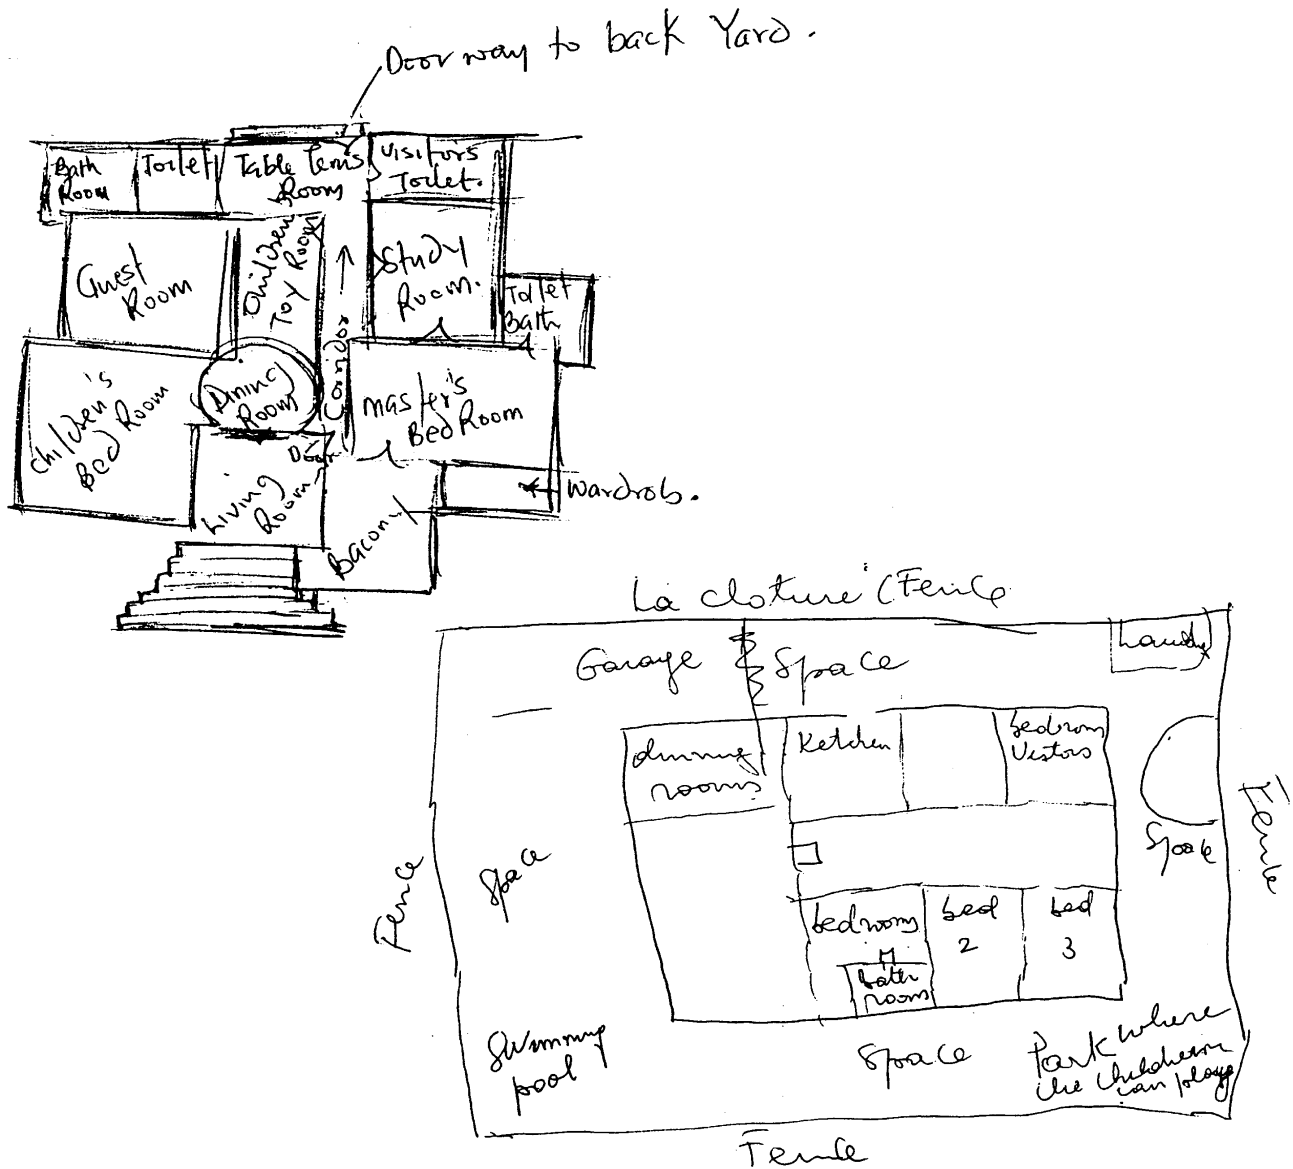 Doorway to back Yard.
Bath
Room
Toilet
Table Tenis
Room
Visitors
Toilet.
Guest
Room
Children
Toy Room
Study
Room.
Toilet
Bath
Children's
Bed Room
Dining
Room
Coridor
master's
Bed Room
Door
Living
Room
Bacony
Wardrob.
La cloture (Fence
Garage
Space
Laundry
dinning
rooms
Ketchen
bedroom
Vistors
Space
Fence
Space
Fence
bedrooms
bath
rooms
bed
2
bed
3
Swimming
pool
Space
Park where
the children
can playe
Fence